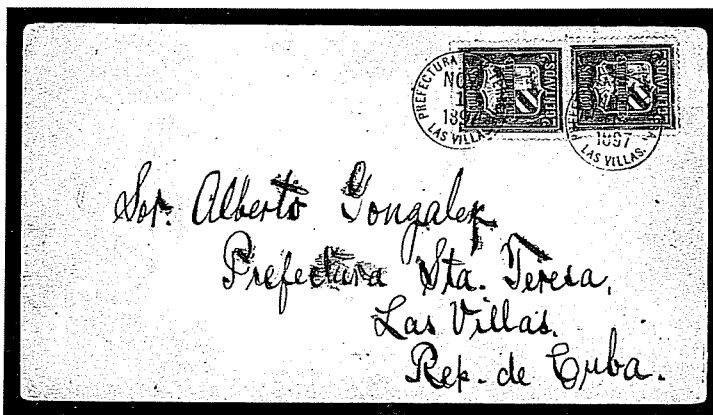 PREFECTURA
NO
1
189
LAS VILLAS
1897
LAS VILLAS.
Sor. Alberto Gonzalez
Prefectura Sta. Teresa,
Las Villas.
Rep. de Cuba.